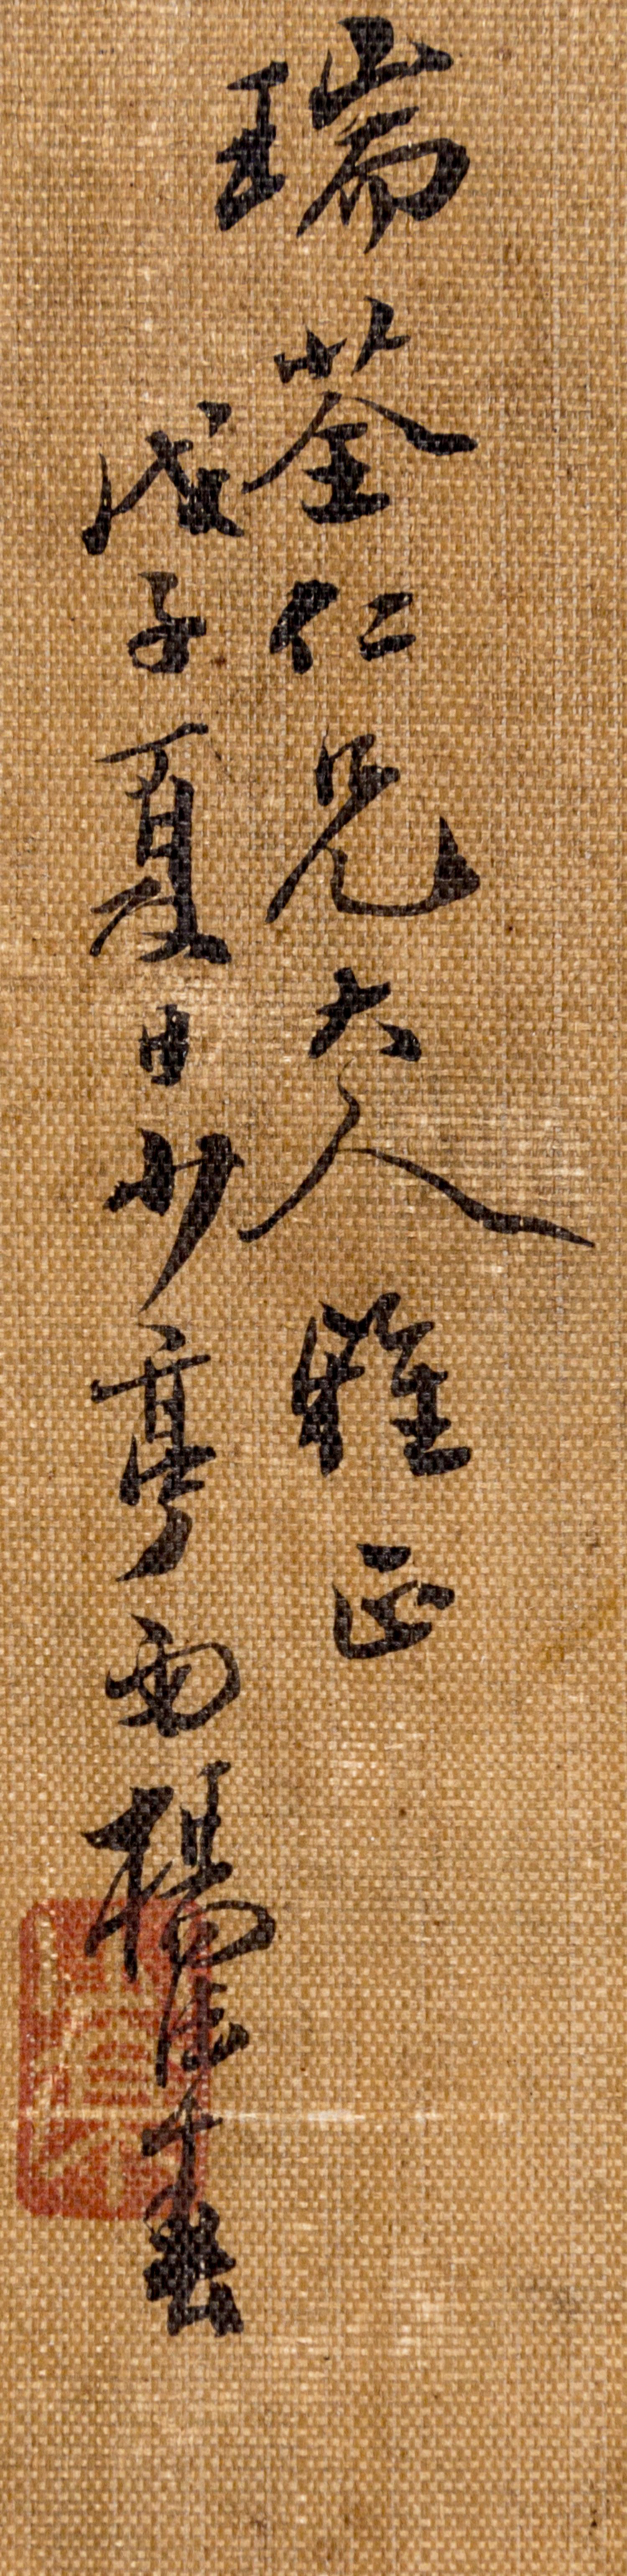 瑞荃仁兄大人雅正
戊子夏日少亭弟楊